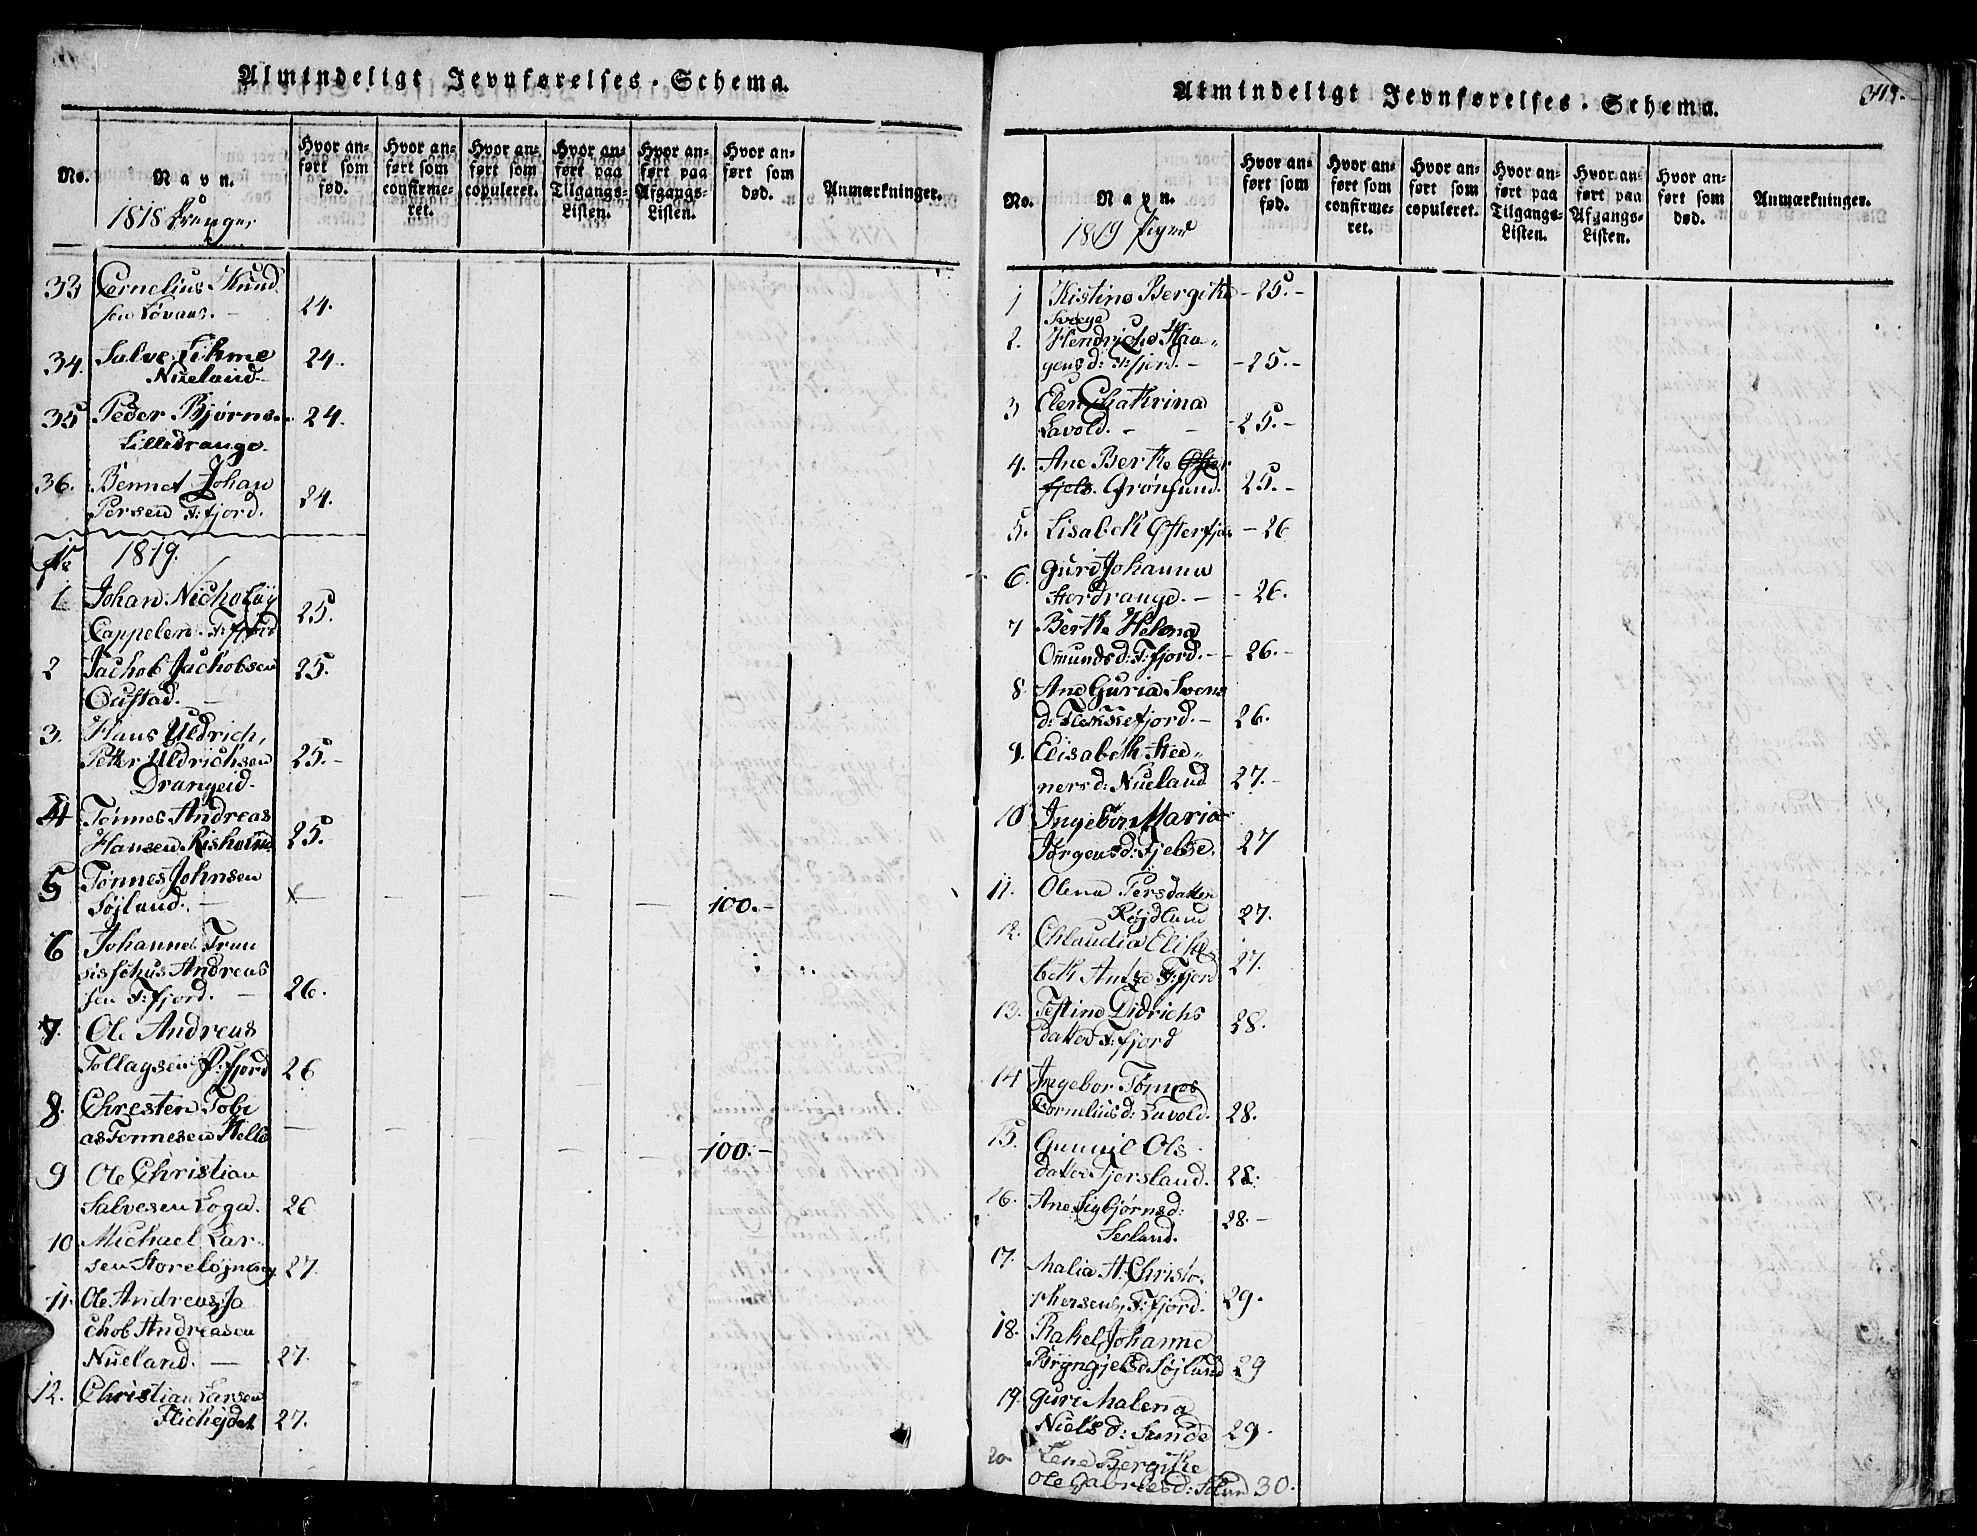 Almindeligt Jevnførelses-Schema.
No.
Navn.
1818 Drenge,
Hvor an-
ført som
fød.
Hvor an-
ført som
confirme-
ret.
Hvor an-
ført som
copuleret.
Hvor an-
ført paa
Tilgangs-
Listen.
Hvor an-
ført paa
Afgangs-
Listen.
Hvor an-
ført som
død.
Anmærkninger.
33 Cornelius Knud
sen Løvaas. - 24.
34. Salve Lihme
Nueland. 24.
35 Peder Bjørns.
Lilledrange. 24.
36. Bennet Johan
Persen F:fjord. 24.
1819.
1 Johan Nicholay
Cappelen F:fjord 25.
2 Jachob Jachobsen
Oustad. 25.
3. Hans Uldrich,
Petter Uldrichsen
Drangeid. 25.-
4 Tønnes Andreas
Hansen Risholm 25.
5 Tønnes Johnsen
Søjland. - x - - - - 100.-
6 Johannes Fran
sisschus Andreas
sen F:fjord. - 26.
7. Ole Andreas
Tollagsen F:fjord 26
8. Chresten Tobi
as Tonnesen Helle - - - - - 100.-
9 Ole Christian
Salvesen Loga. 26
10 Michael Lar
sen Storeløjning. 27.
11. Ole Andreas Ja
chob Andreasen
Nueland. - 27.
12. Christian Larsen
Flichejdet 27.
Almindeligt Jevnførelses-Schema.
No.
Navn.
1819 Piger
Hvor an-
ført som
fød.
Hvor an-
ført som
confirme-
ret.
Hvor an-
ført som
copuleret.
Hvor an-
ført paa
Tilgangs-
Listen.
Hvor an-
ført paa
Afgangs-
Listen.
Hvor an-
ført som
død.
Anmærkninger.
1 Kistine Bergithe - 25.-
Svege
2. Hendriche Haa-
gensd: F:fjord. - - 25.-
3 Elen Chathrina
Lavold. - - - 25.-
4. Ane Berthe Øster
fjels. Grønsund. 25.-
5. Lisabeth Østerfjels - 26
6. Guri Johanna
Stordrange. - - 26.
7 Berthe Helena
Omundsd: F:fjord. - 26.-
8. Ane Guria Svens
d: Flekkefjord. - 26.
9. Elisabeth Stee-
nersd: Nueland 27.-
10 Ingebor Maria
Jørgensd: Fjelse. 27
11. Olena Persdatter
Røjdland 27.
12. Chlaudia Elisa
beth Antze F:fjord 27.
13. Testine Didrichs
datter F:fjord 28.
14 Ingebor Tømes
Cornliusd: Lavold. 28.
15. Gunnil Ols
datter Fjersland. 28.
16. Ane Sigbjørnsd:
Sesland. 28.-
17. Malia A. Christo-
phersens, F:fjord. 29.
18. Rakel Johanne
Bryngjelsd: Søjland 29
19. Guri Malena
Niels d: Sunde 29.
20 Lene Bergitke
Ole Gabrielsd: 30.